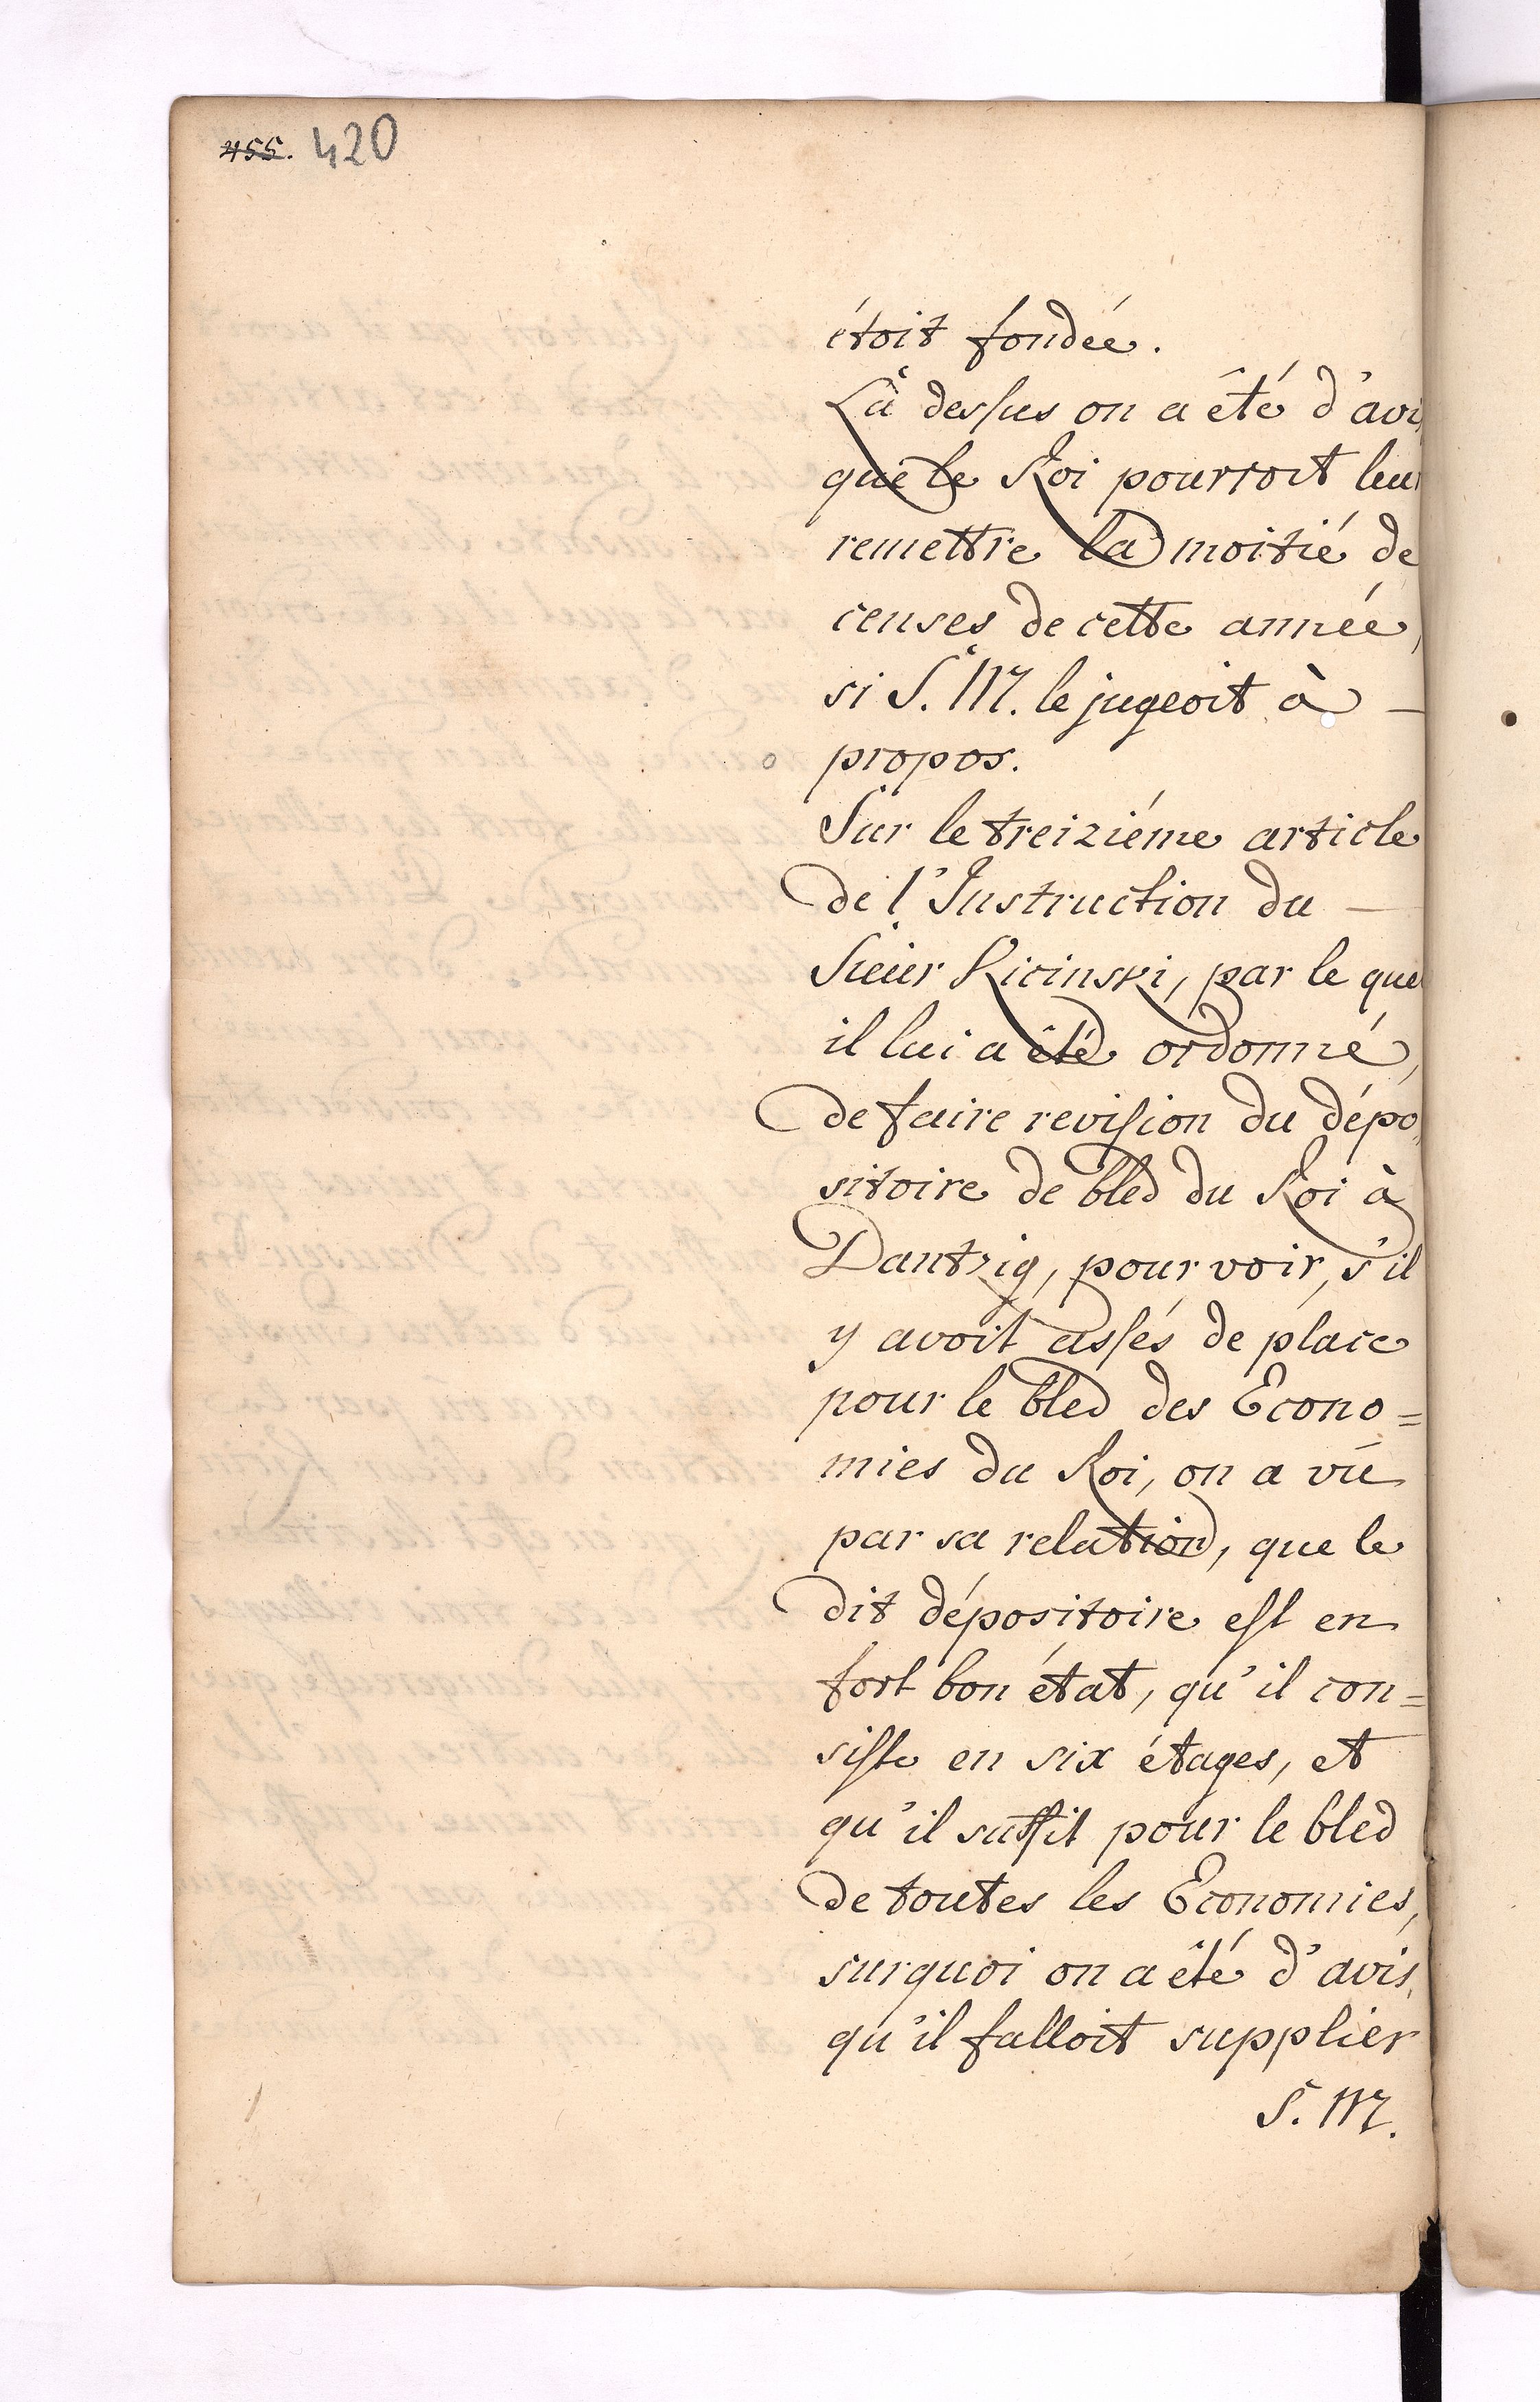 455. 420
étoit fondée.
Là dessus on a êté d'avi
que le Roi pourroit leur
remettre la moitié de
censes de cette année,
si S. M. le jugeoit à —
propos.
Sur le treiziéme article
de l'Instruction du —
Sieur Kicinski, par le que
il lui a êté ordonné,
de faire revision du dépo
sitoire de bled du Roi à
Dantzig, pour voir, s'il
y avoit assés de place
pour le bled des Econo=
mies du Roi, on a vû
par sa relation, que le
dit dépositoire est en
fort bon état, qu'il con=
siste en six étages, et
qu'il suffit pour le bled
de toutes les Economies,
surquoi on a êté d'avis,
qu'il falloit supplier
S. M.